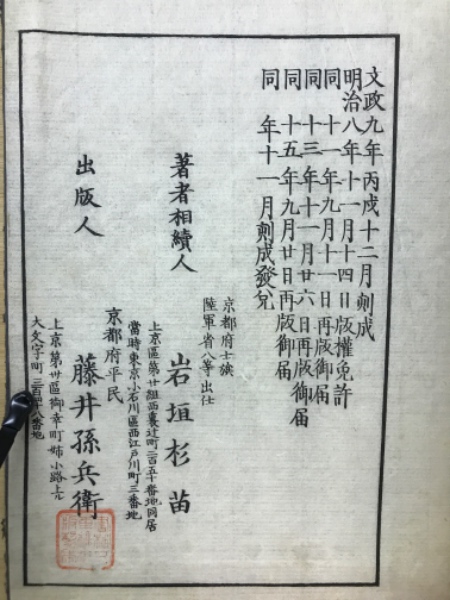 文政九年丙戌十二月刻成
明治八年十一月十四日版權免許
同十一年九月十一日再版御届
同十三年十一月廿六日再版御届
同十五年九月廿日再版御届
同年十一月刻成發兌
京都府士族
陸軍省八等出仕
著者相續人 岩垣杉苗
上京區第廿組西裏辻町二百五十番地同居
當時東京小石川區西江戸川町三番地
京都府平民
出版人 藤井孫兵衛
上京第廿区御幸町姉小路上ル
大文字町三百四十八番地